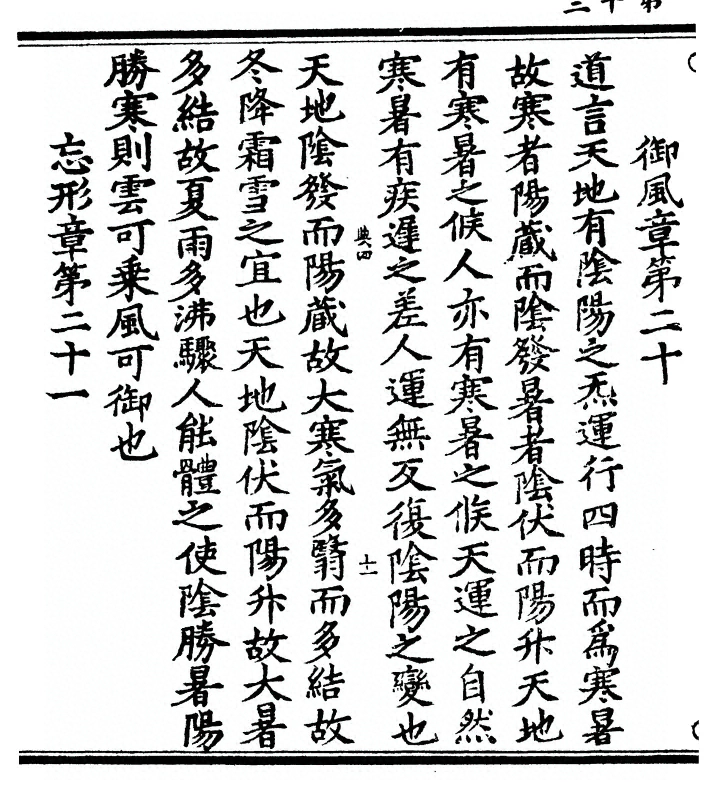 第十二
御風章第二十
道言天地有陰陽之炁運行四時而為寒暑
故寒者陽藏而陰發暑者陰伏而陽升天地
有寒暑之候人亦有寒暑之候天運之自然
寒暑有疾遲之差人運無反復陰陽之變也
典四
十一
天地陰發而陽藏故大寒氣多翳而多結故
冬降霜雪之宜也天地陰伏而陽升故大暑
多結故夏雨多沸驟人能體之使陰勝暑陽
勝寒則雲可乗風可御也
忘形章第二十一